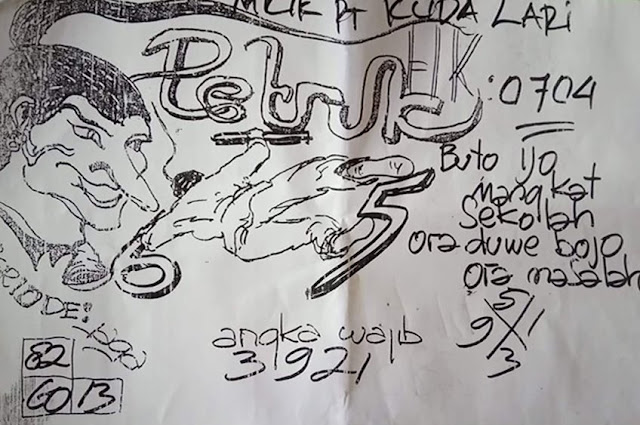 KUDA LARI
Petruk
: 0704
Buto ijo
mangkat
Sekollah
ora duwe bojo
ora masalah
6 5
RIODE:
82
60 13
angka wajib
3921
5
9 1
3